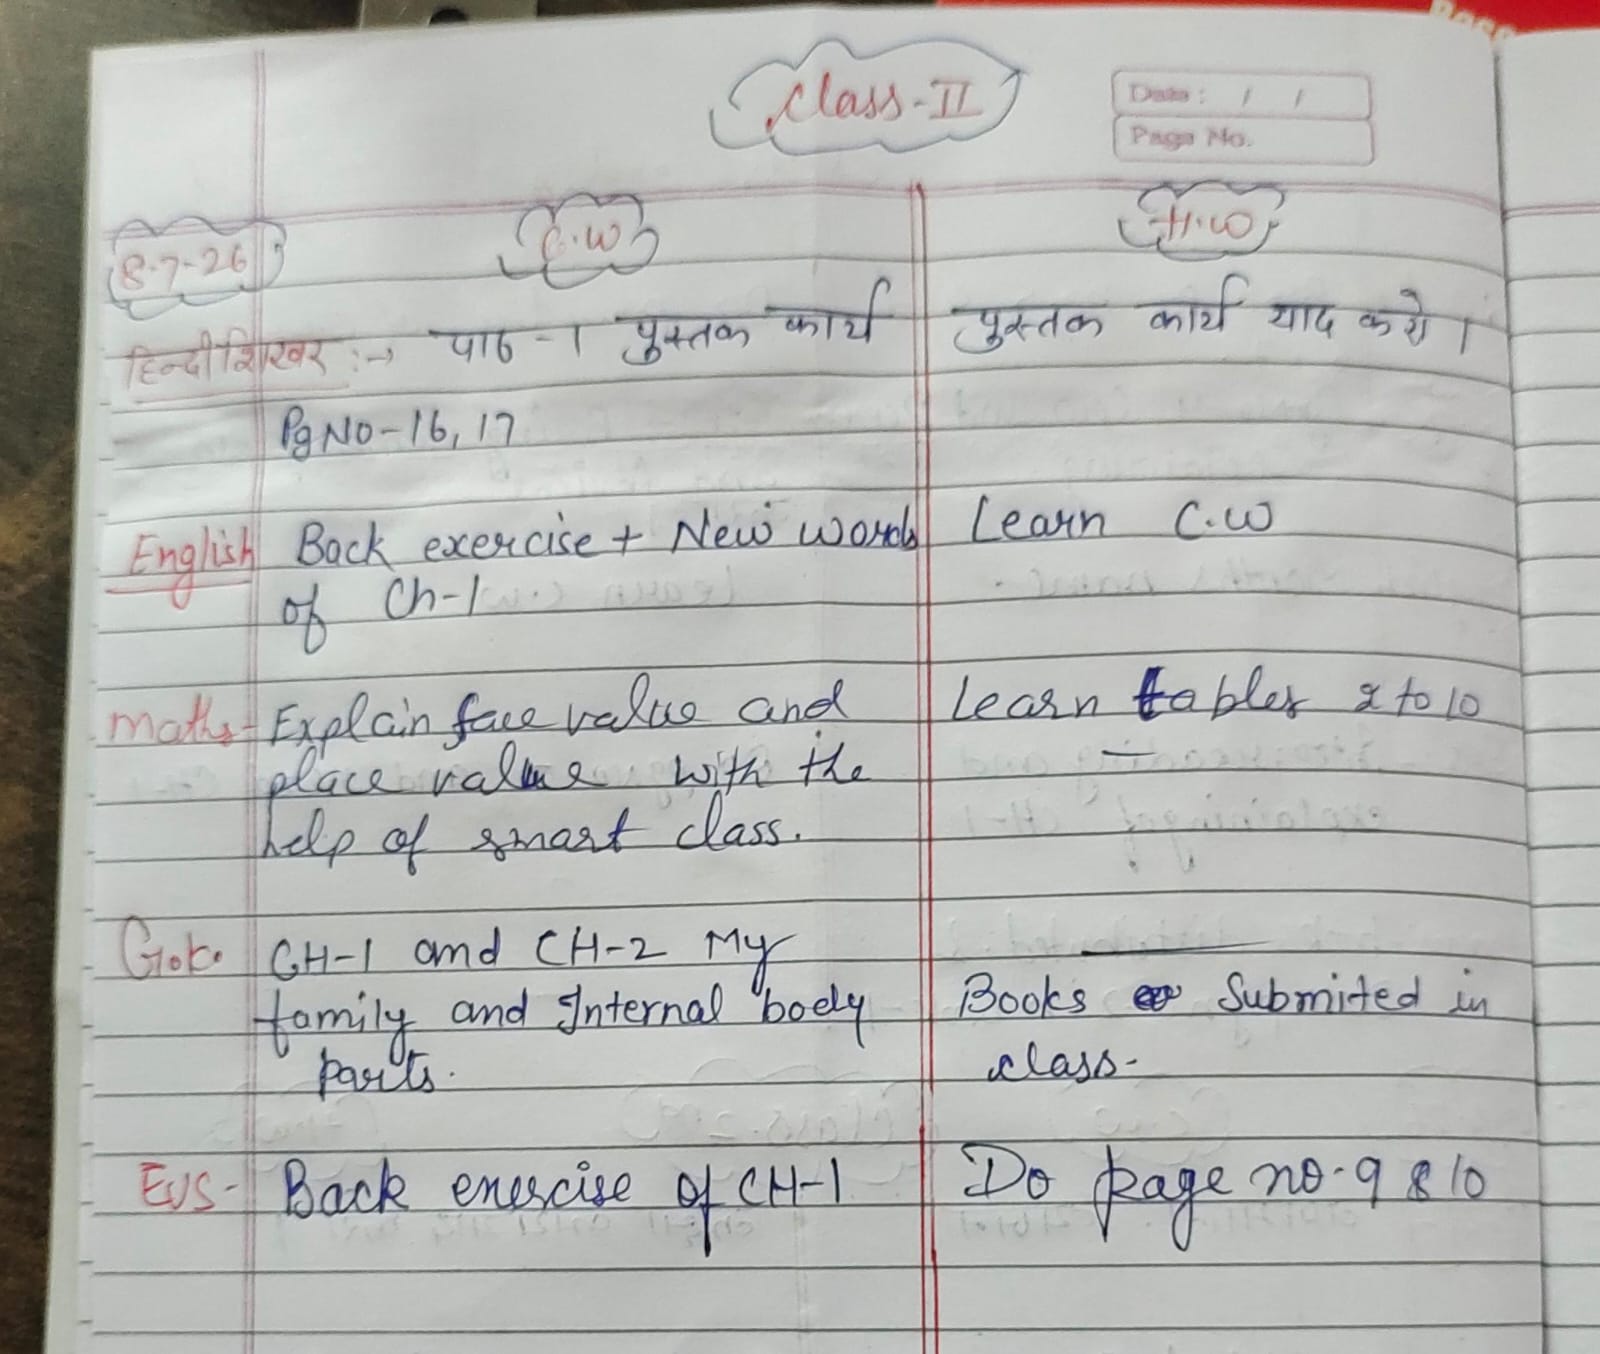 Class-II
Date: / /
Page No.
8-7-26
C.W
H.W
हिन्दी शिखर :→ पाठ-1 पुस्तक कार्य
पुस्तक कार्य याद करो।
Pg No-16, 17
English Back exercise + New words
of Ch-1
Learn C.W
Maths- Explain face value and
place value with the
help of smart class.
Learn tables 2 to 10
G.k. CH-1 and CH-2 My
family and Internal body
parts.
Books Submited in
class-
EVS- Back exercise of CH-1
Do page no-9 & 10